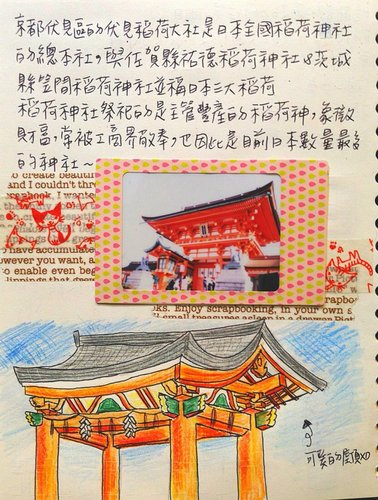 京都伏見區的伏見稻荷大社是日本全國稻荷神社
的總本社。與佐賀縣祐德稻荷神社&茨城
縣笠間稻荷神社並福日本三大稻荷
稻荷神社祭祀的是主管豐產的稻荷神,象徵
財富,常被工商界敬奉,也因此是目前日本數量最多
的神社~
o create beautiful
and I couldn't thr
I wante
have accumulate
owever you want, a
to enable even beg
lippings that
scrapbo
ks. Enjoy scrapbooking, in your own s
small treasures asleep in a drawer
可愛的屋頂XD